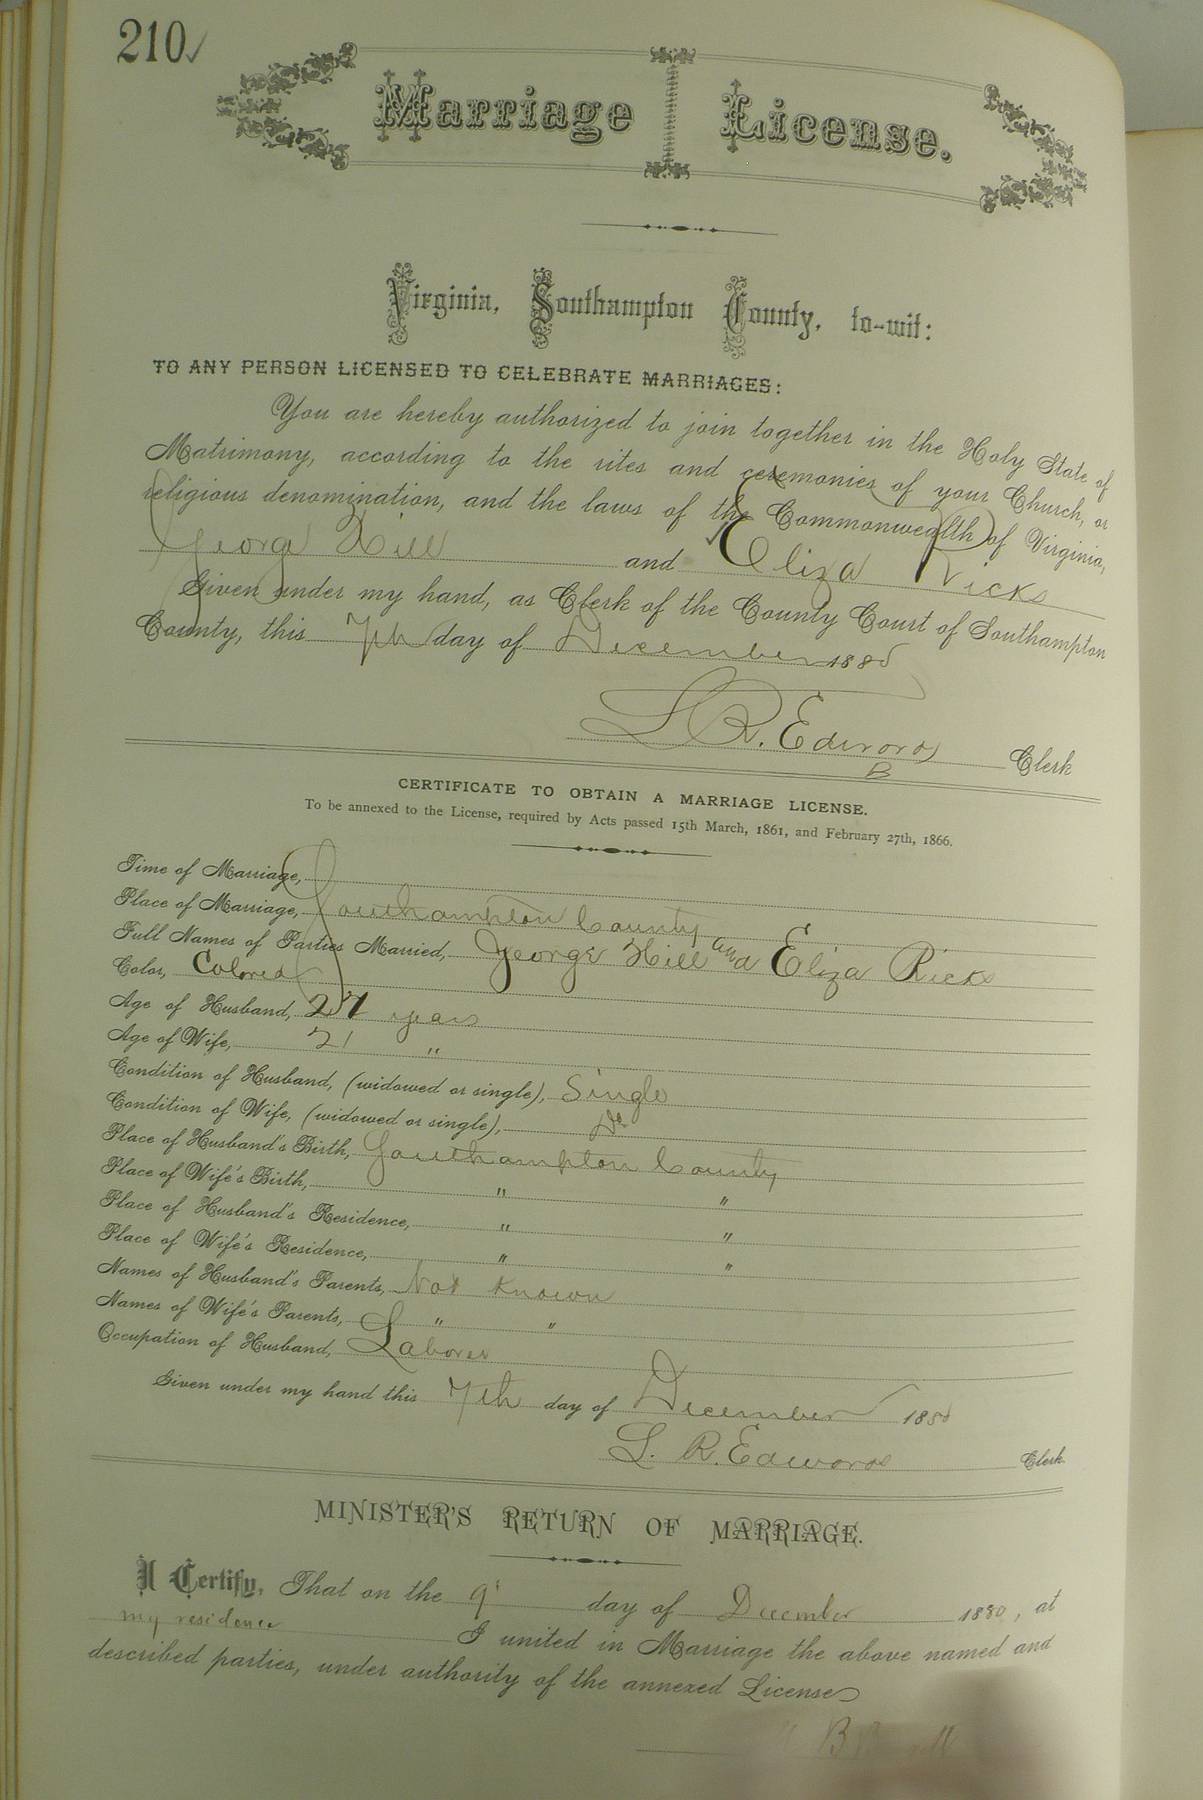 210
Marriage License.
Virginia, Southampton County, to-wit:
TO ANY PERSON LICENSED TO CELEBRATE MARRIAGES:
You are hereby authorized to join together in the Holy State of
Matrimony, according to the rites and ceremonies of your Church, or
religious denomination, and the laws of the Commonwealth of Virginia,
George Hill and Eliza Ricks
Given under my hand, as Clerk of the County Court of Southampton
County, this 7th day of December 1880
L R. Edwards Clerk
B
CERTIFICATE TO OBTAIN A MARRIAGE LICENSE.
To be annexed to the License, required by Acts passed 15th March, 1861, and February 27th, 1866.
Time of Marriage,
Place of Marriage, Southampton County
Full Names of Parties Married, George Hill and Eliza Ricks
Color, Colored
Age of Husband, 27 years
Age of Wife, 21 "
Condition of Husband, (widowed or single), Single
Condition of Wife, (widowed or single), Do
Place of Husband's Birth, Southampton County
Place of Wife's Birth, " "
Place of Husband's Residence, " "
Place of Wife's Residence, " "
Names of Husband's Parents, Not Known
Names of Wife's Parents, " "
Occupation of Husband, Laborer
Given under my hand this 7th day of December 1880
L. R. Edwards Clerk.
MINISTER'S RETURN OF MARRIAGE.
I Certify, That on the 9 day of December 1880, at
my residence I united in Marriage the above named and
described parties, under authority of the annexed License